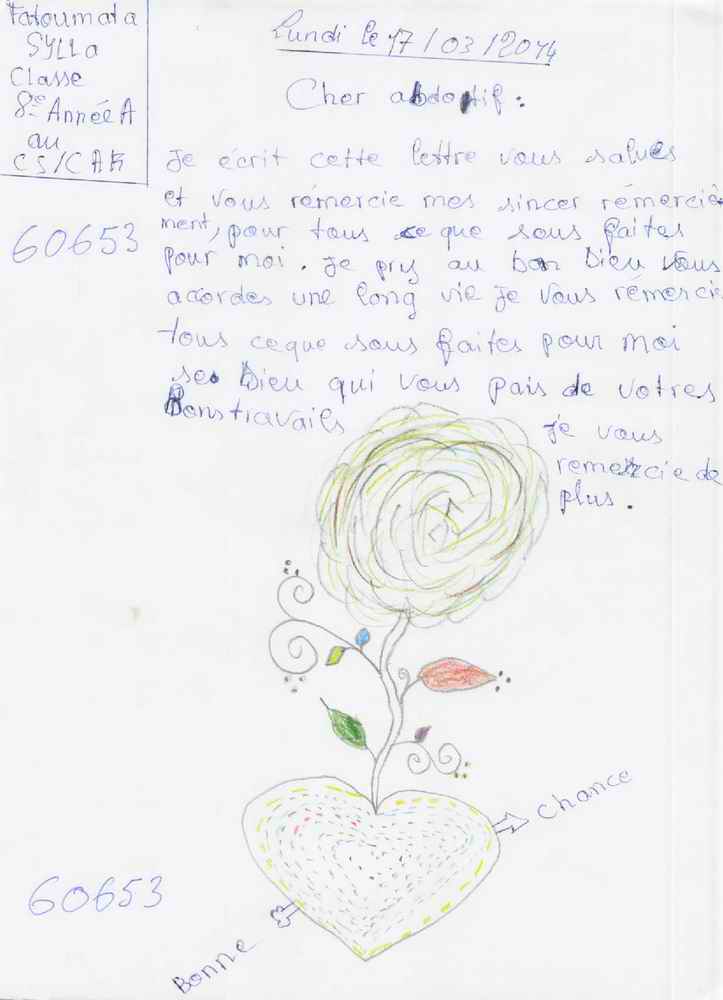 Fatoumata
SYLLa
Classe
8e Année A
au
CS/CAK
Lundi le 17/03/2014
Cher abdoptif :
Je écrit cette lettre vous salues
et vous rémercie mes sincer rémercie-
ment, pour tous ce que sous faites
pour moi. Je pry au bon Dieu vous
acordes une long vie Je vous rémercie
tous ceque sous faites pour moi
se Dieu qui vous pais de votres
Bonstravails
Je vous
remercie de
plus.
60653
Chance
60653
Bonne